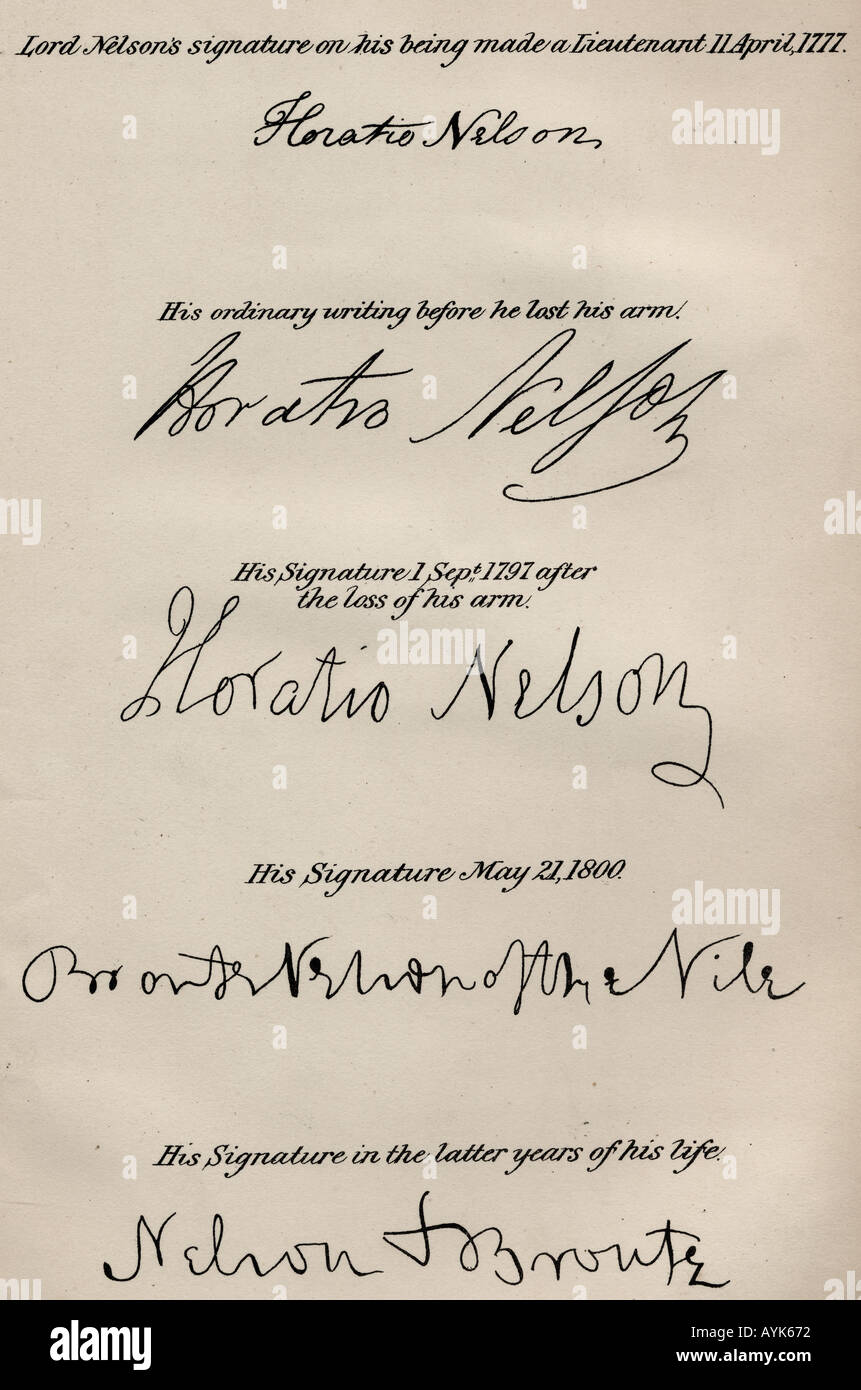 Lord Nelson's signature on his being made a Lieutenant 11 April, 1777.
Horatio Nelson
His ordinary writing before he lost his arm.
Horatio Nelson
His Signature 1 Sept. 1797 after
the loss of his arm.
Horatio Nelson
His Signature May 21, 1800.
Bronte Nelson of the Nile
His Signature in the latter years of his life.
Nelson & Bronte
alamy
alamy
alamy
alamy
alamy stock photo
Image ID: AYK672
www.alamy.com